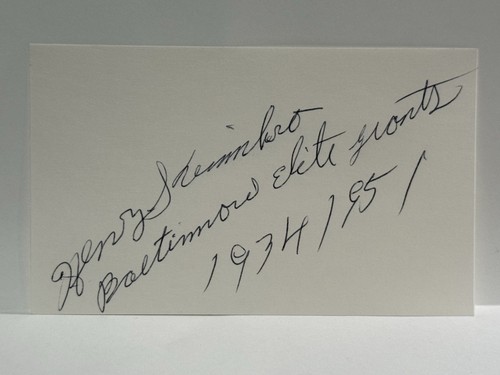 Henry Kimbro
Baltimore Elite giants
1934 1951